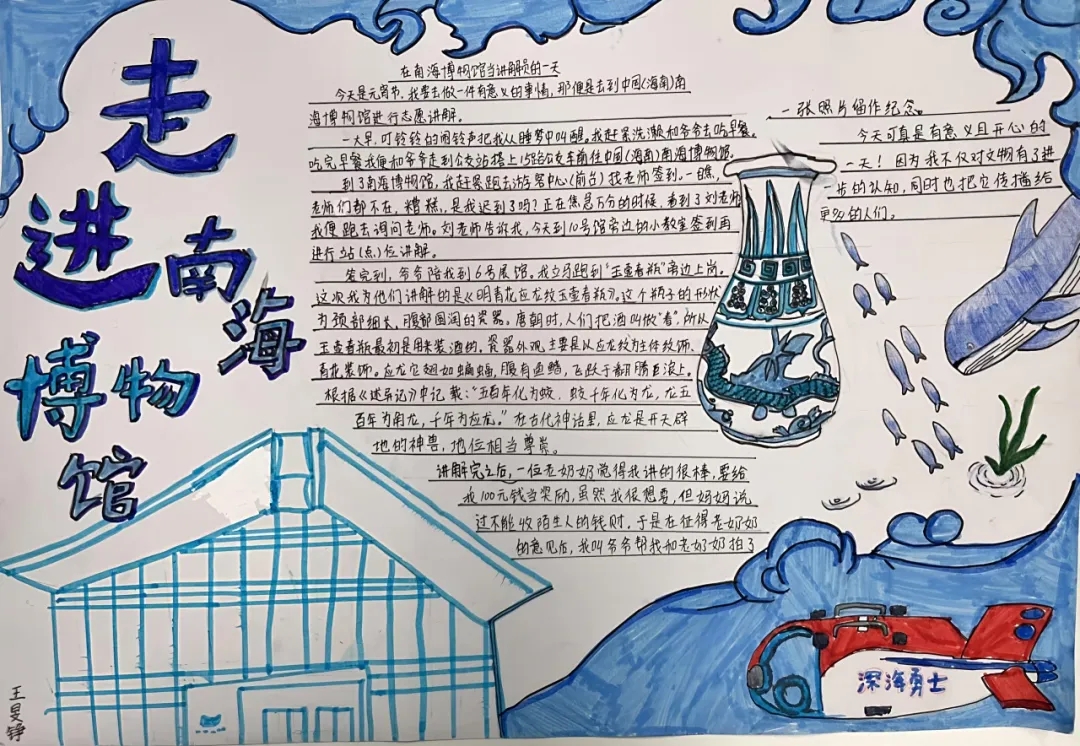 走进南海博物馆
在南海博物馆当讲解员的一天
今天是元宵节，我要去做一件有意义的事情，那便是去到中国(海南)南
海博物馆进行志愿讲解。
一大早，叮铃铃的闹铃声把我从睡梦中叫醒。我赶紧洗漱和爷爷去吃早餐，
吃完早餐我便和爷爷走到公交站搭上15路公交车前往中国(海南)南海博物馆，
到了南海博物馆，我赶紧跑去游客中心(前台)找老师签到。一瞧，
老师们都不在，糟糕，是我迟到了吗？正在焦急万分的时候，看到了刘老师
我便跑去询问老师。刘老师告诉我，今天到10号馆旁边的小教室签到再
进行站(点)位讲解。
签完到，爷爷陪我到6号展馆。我立马跑到“玉壶春瓶”旁边上岗。
这次我为他们讲解的是《明青花应龙纹玉壶春瓶》。这个瓶子的形状
为颈部细长，腹部圆润的瓷器。唐朝时，人们把酒叫做“春”，所以
玉壶春瓶最初是用来装酒的。瓷器外观主要是以应龙纹为主体纹饰，
青花装饰。应龙它翅如蝙蝠，腹有鱼鳍，飞跃于翻腾巨浪上。
根据《述异记》中记载：“五百年化为蛟，蛟千年化为龙，龙五
百年为角龙，千年为应龙。”在古代神话里，应龙是开天辟
地的神兽，地位相当尊崇。
讲解完之后，一位老奶奶觉得我讲的很棒，要给
我100元钱当奖励，虽然我很想要，但妈妈说
过不能收陌生人的钱财，于是在征得老奶奶
的意见后，我叫爷爷帮我和老奶奶拍了
一张照片留作纪念。
今天可真是有意义且开心的
一天！因为我不仅对文物有了进
步的认知，同时也把它传播给
更多的人们。
深海勇士
王旻铮